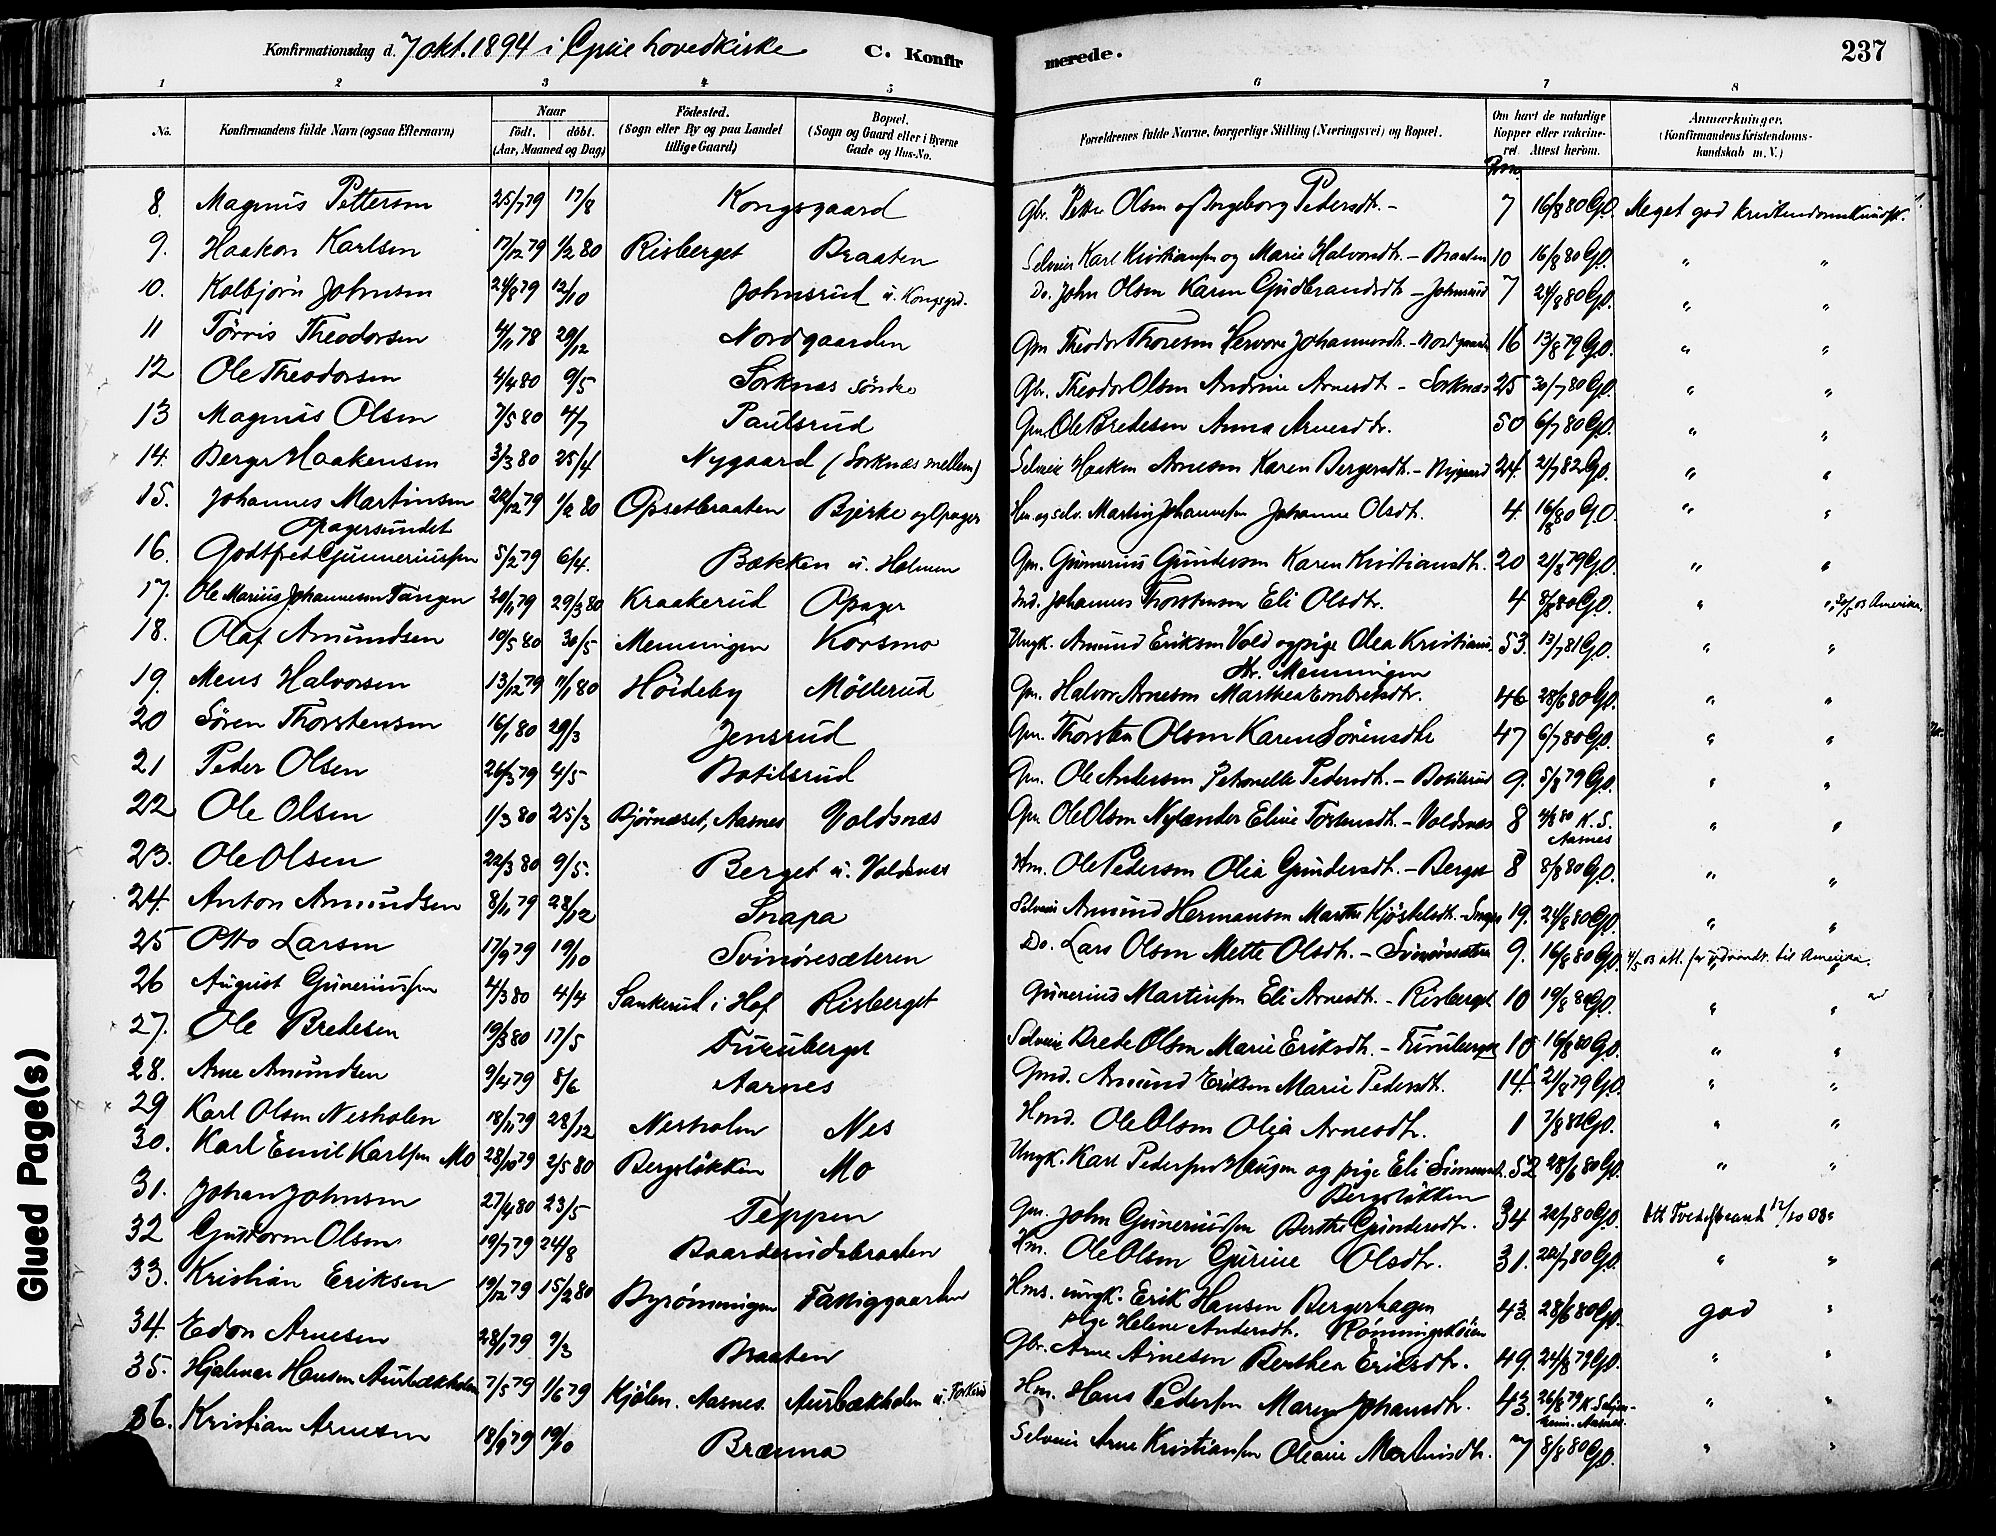 Konfirmationsdag d. 7 okt. 1894 i hovedkirke C. Konfirmerede. 237
1 2 3 4 5 6 7 8
No. Konfirmandens fulde Navn (ogsaa Efternavn) Naar født. døbt. (Aar, Maaned og Dag) Fødested. (Sogn eller By og paa Landet tillige Gaard) Bopæl. (Sogn og Gaard eller i Byerne Gade og Hus-No. Forældrenes fulde Navne, borgerlige Stilling (Næringsvei) og Bopæl. Om havt de naturlige Kopper eller vakcineret Attest herom. Anmærkninger. (Konfirmandens Kristendomskundskab m. V.)
8. Magnus Pettersen 25/7 79 17/8 Kongsgaard Gbr. Petter Olsen og Ingeborg Pedersdtr. - 7 16/8 80 G.O. Meget god kristendomskundsk.
9. Haakon Karlsen 17/12 79 1/2 80 Risberget Braaten Selveier Karl Kristiansen og Marie Halvorsdtr. - Braaten 10 16/8 80 G.O. " "
10. Kolbjørn Johnsen 24/8 79 12/10 Johnsrud u. Kongsgrd. Do. John Olsen Karen Gudbrandsdtr. - Johnsrud 7 24/8 80 G.O. " "
11 Tørris Theodorsen 4/11 78 29/12 Nordgaarden Gm. Theodor Thoresen Johannesdtr. - Nordgaarden 16 13/8 79 G.O. " "
12 Ole Theodorsen 4/4 80 9/5 Sorknæs søndre Gbr. Theodor Olsen Andrine Arnesdtr. - Sorknæs 25 30/7 80 G.O. " "
13 Magnus Olsen 7/5 80 4/7 Paulsrud Gm. Ole Bredesen Anna Arnesdtr. 50 6/7 80 G.O. " "
14. Berger Haakensen 3/3 80 25/4 Nygaard (Sorknæs mellem) Selveier Haaken Arnesen Karen Bergersdtr. - Nygaard 24. 21/7 82 G.O. " "
15. Johannes Martinsen Opagersundet 22/12 79 1/2 80 Opsetbraaten Bjerke og Opager Martin Johannesen Johanne Olsdtr. 4. 16/8 80 G.O. " "
16. Godtfred Gunneriussen 5/2 79 6/4. Bækken u. Holmen Gm. Gunnerius Gundersen Karen Kristiansdtr. 20 21/8 79 G.O. " "
17. Ole Marius Johannesen Tangen 20/11 79 29/3 80 Kraakerud Opager Ind. Johannes Thorstensen Eli Olsdtr. 4 8/8 80 G.O. " " 03 Amerika.
18. Olaf Amundsen 10/5 80 30/5 Menningen Korsmo Ungk. Amund Eriksen Vold og pige Olea Kristiansdtr. Menningen 53. 13/7 81 G.O. " "
19. Mens Halvorsen 13/12 79 11/1 80 Høideby Møllerud Gm. Halvor Arnesen Marthea Embretsdtr. 46 28/6 80 G.O. " "
20 Søren Thorstensen 16/1 80 29/3 Jensrud Gm. Thorsten Olsen Karen Sørensdtr 47 6/7 80 G.O. " "
21 Peder Olsen 26/3 79 4/5 Botilsrud Gm. Ole Andersen Petronelle Pedersdtr. - Botilsrud 9. 5/8 79 G.O. " "
22 Ole Olsen 1/3 80 25/3 Bjørnæset, Aasnes Voldsnæs Gm Ole Olsen Nylænder Eline - Voldsnæs 8 K. S. Aasnes " "
23. Ole Olsen 22/3 80 9/5. Berget u. Voldsnæs Hm. Ole Pedersen Olia Gundersdtr. - Berget 8 8/8 80 G.O. " "
24. Anton Amundsen 8/11 79 28/12 Snapa Selveier Amund Hermansen Marthe Kjøstelsdtr. - Snapa 19. 24/8 80 G.O. " "
25 Otto Larsen 17/9 79 19/10 Svinøresæteren Do. Lars Olsen Mette Olsdtr. - Svinøresæteren 9. 16/8 80 G.O. 4/5 03 att. for udvandr. til Amerika.
26 August Guneriussen 4/3 80 4/4 Sankerud i Hof Risberget Gunerius Martinsen Eli Arnesdtr. - Risberget 10 19/8 80 G.O. " "
27. Ole Bredesen 19/3 80 17/5 Furuberget Selveier Brede Olsen Marie Eriksdtr. - Furuberget 10 16/8 80 G.O. " "
28. Arne Amundsen 9/4 79 8/6 Aarnes Gmd. Amund Eriksen Marie Pedersdtr. 14. 21/8 79 G.O. " "
29 Karl Olsen Nesholen 18/11 79 28/12 Nesholen Nes Hmd. Ole Olsen Olia Arnesdtr. 1 G.O. " "
30. Karl Emil Karlsen Mo 28/10 79 2/5 80 Bergsløkken Mo Ungk. Karl Pedersen Haugen og pige Eli Simensdtr. Bergsløkken 52 28/6 80 G.O. " "
31. Johan Johnsen 27/4 80 23/5 Teppen Gm. John Guneriussen Berthe Gundersdtr. 34 22/7 80 G.O. 12/10 08.
32 Guttorm Olsen 19/7 79 24/8 Baarderudsbraaten Hm. Ole Olsen Gurine Olsdtr. 31. 22/7 80 G.O. " "
33. Kristian Eriksen 19/12 79 15/2 80 Byrømningen Fattiggaarden Hms. ungk. Erik Hansen Bergerhagen pige Helene Andersdtr. 43. 28/6 80 G.O. god "
34. Edon Arnesen 28/1 79 9/3 Braaten Gbr. Arne Arnesen Berthea Eriksdtr. 49. 24/8 79 G.O. " "
35. Hjalmar Hansen Aurbækholen 7/5 79 1/6 79 Kjølen. Aasnes. Aurbækholen u. Hm. Hans Pedersen Maren Johansdtr. 43. 26/8 79 Aasnes. " "
36. Kristian Arnesen 18/9 79 19/10 Brænna Selveier Arne Kristiansen Oleane Martinsdtr. 7 8/8 80 G.O. " "
Glued Page(s)